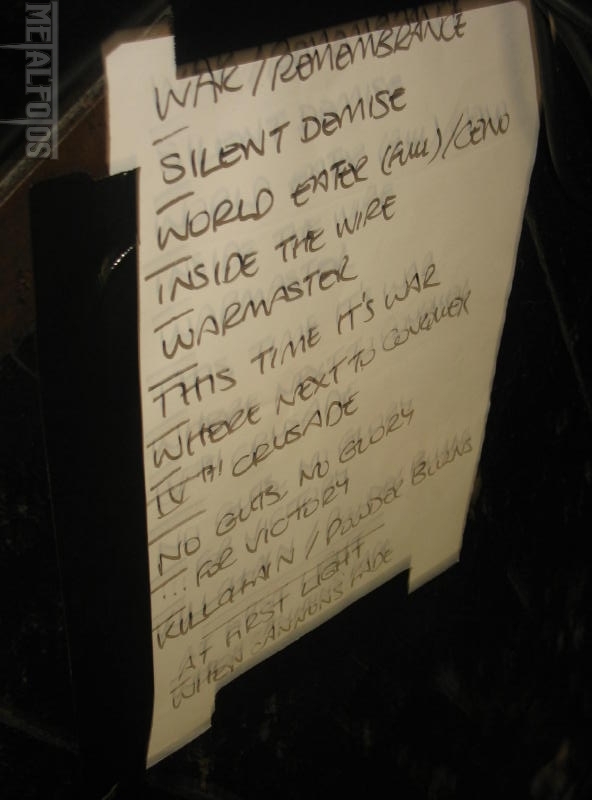 METALFOTOS
WAR/REMEMBRANCE
SILENT DEMISE
WORLD EATER (FULL)/CENO
INSIDE THE WIRE
WARMASTER
THIS TIME IT'S WAR
WHERE NEXT TO CONQUER
IVTH CRUSADE
NO GUTS, NO GLORY
...FOR VICTORY
KILLCHAIN / POWDER BURNS
AT FIRST LIGHT
WHEN CANNONS FADE